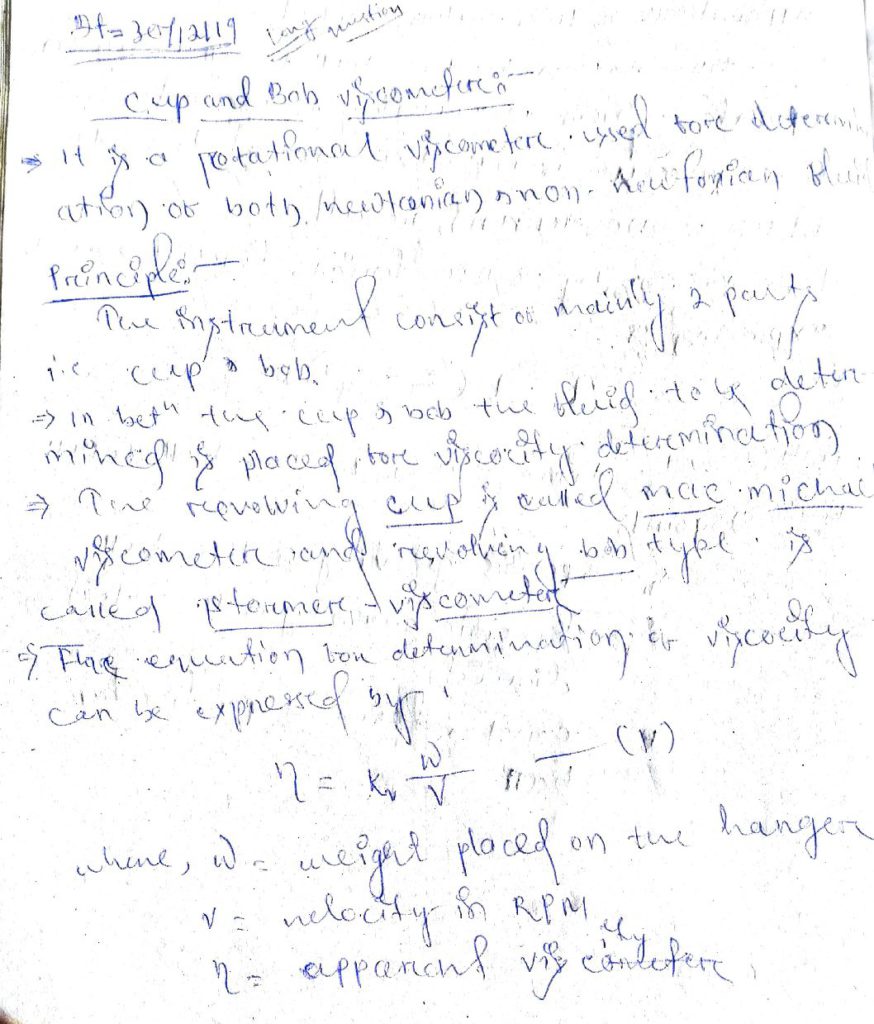 Dt = 30/12/19 Long question
Cup and Bob viscometere:-
⇒ It is a rotational viscometere used fore determin
ation of both newtonian & non-Newtonian flui
Principle:-
The instreument consist of mainly 2 parts
i.e. cup & bob.
⇒ In betn the cup & bob the fluid to be deter
mined is placed, fore viscocity determination
⇒ The revolving cup is called mac michael
viscometere and revolving bob type is
called stormere viscometere
⇒ The equation for determination of viscocity
can be expressed by
η = Kv w/v — (V)
where, w = weight placed on the hangere
v = velocity in RPM
η = apparent viscometere